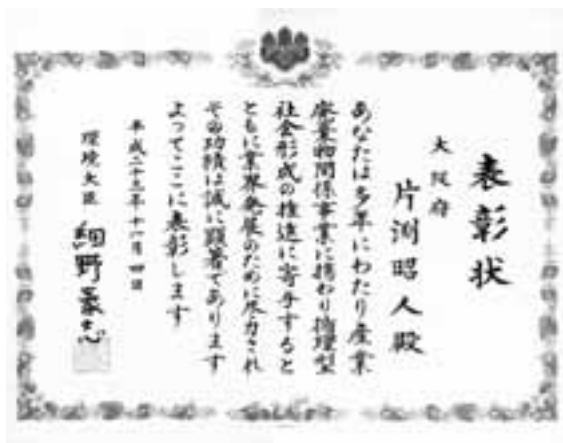 表彰状
大阪府
片渕昭人殿
あなたは多年にわたり産業
廃棄物関係事業に携わり循環型
社会形成の推進に寄与すると
ともに業界発展のために尽力され
その功績は誠に顕著であります
よってここに表彰します
平成二十三年十一月四日
環境大臣
細野豪志